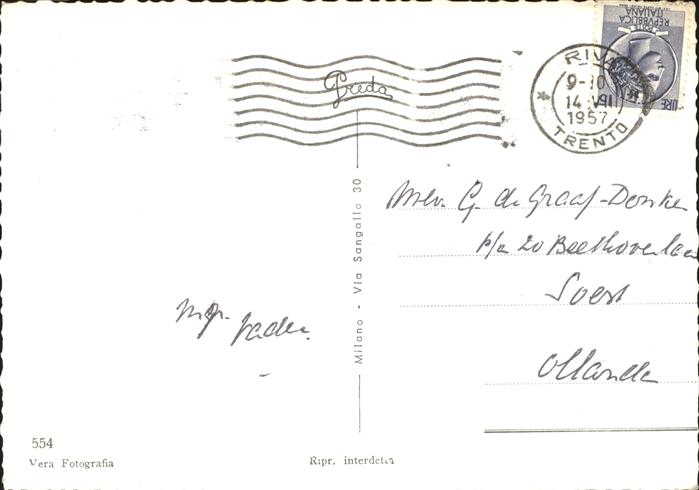 REPVBBLICA
ITALIANA
POSTE
LIRE
RIVA
9-10
14 VII
1957
* TRENTO
Greda
Milano - Via Sangallo 30
Mev. G. de Graaf-Donker
p/a 20 Beethovenlaan
Soest
Ollanda
Vader.
554
Vera Fotografia
Ripr. interdetta